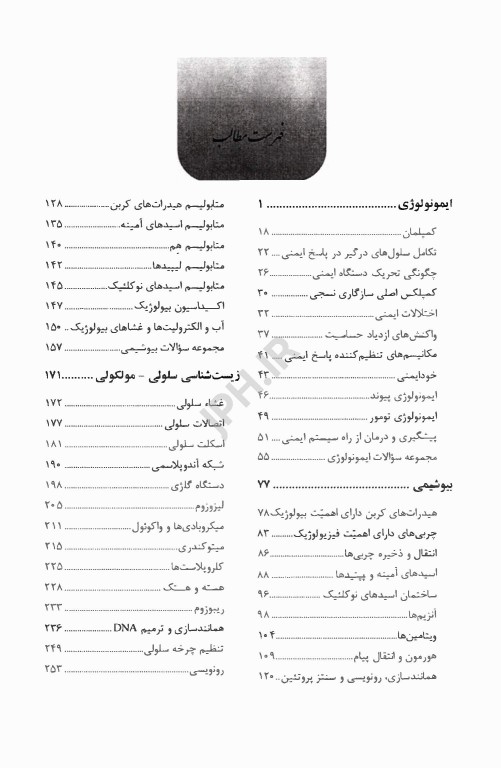 فهرست مطالب
ایمونولوژی ........................................ ۱
کمپلمان ........................................ ۱۸
تکامل سلول‌های درگیر در پاسخ ایمنی .... ۲۲
چگونگی تحریک دستگاه ایمنی .................... ۲۶
کمپلکس اصلی سازگاری نسجی ............... ۳۰
اختلالات ایمنی ................................ ۳۲
واکنش‌های ازدیاد حساسیت .................... ۳۷
مکانیسم‌های تنظیم‌کننده پاسخ ایمنی .... ۴۱
خودایمنی ........................................ ۴۳
ایمونولوژی پیوند ................................ ۴۶
ایمونولوژی تومور ................................ ۴۹
پیشگیری و درمان از راه سیستم ایمنی .... ۵۱
مجموعه سؤالات ایمونولوژی .................... ۵۵
بیوشیمی ........................................ ۷۷
هیدرات‌های کربن دارای اهمیّت بیولوژیک ۷۸
چربی‌های دارای اهمیّت فیزیولوژیک ......... ۸۳
انتقال و ذخیره چربی‌ها ........................ ۸۶
اسیدهای آمینه و پپتیدها ........................ ۸۸
ساختمان اسیدهای نوکلئیک .................... ۹۶
آنزیم‌ها ........................................ ۹۸
ویتامین‌ها ........................................ ۱۰۴
هورمون و انتقال پیام ........................ ۱۰۹
همانندسازی، رونویسی و سنتز پروتئین .. ۱۲۰
متابولیسم هیدرات‌های کربن .................... ۱۲۸
متابولیسم اسیدهای آمینه .................... ۱۳۵
متابولیسم هِم ................................ ۱۴۰
متابولیسم لیپیدها ............................ ۱۴۲
متابولیسم اسیدهای نوکلئیک .................... ۱۴۵
اکسیداسیون بیولوژیک ........................ ۱۴۷
آب و الکترولیت‌ها و غشاهای بیولوژیک .. ۱۵۰
مجموعه سؤالات بیوشیمی .................... ۱۵۷
زیست‌شناسی سلولی – مولکولی .......... ۱۷۱
غشاء سلولی ................................ ۱۷۲
اتصالات سلولی ................................ ۱۷۷
اسکلت سلولی ................................ ۱۸۱
شبکه آندوپلاسمی ............................ ۱۹۰
دستگاه گلژی ................................ ۱۹۸
لیزوزوم ........................................ ۲۰۵
میکروبادی‌ها و واکوئول ........................ ۲۱۱
میتوکندری ................................ ۲۱۵
کلروپلاست‌ها ................................ ۲۲۵
هسته و هستک ................................ ۲۲۸
ریبوزوم ........................................ ۲۳۳
همانندسازی و ترمیم DNA .................... ۲۳۶
تنظیم چرخه سلولی ............................ ۲۴۹
رونویسی ........................................ ۲۵۳
JPH.IR